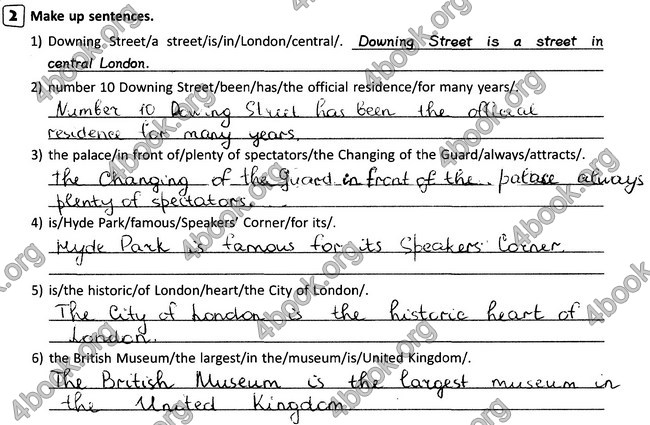 2 Make up sentences.
1) Downing Street/a street/is/in/London/central/. Downing Street is a street in
central London.
2) number 10 Downing Street/been/has/the official residence/for many years/.
Number 10 Downing Street has been the official
residence for many years.
3) the palace/in front of/plenty of spectators/the Changing of the Guard/always/attracts/.
The Changing of the Guard in front of the palace always
plenty of spectators.
4) is/Hyde Park/famous/Speakers' Corner/for its/.
Hyde Park is famous for its Speakers' Corner.
5) is/the historic/of London/heart/the City of London/.
The City of London is the historic heart of
London.
6) the British Museum/the largest/in the/museum/is/United Kingdom/.
The British Museum is the largest museum in
the United Kingdom
4book.org